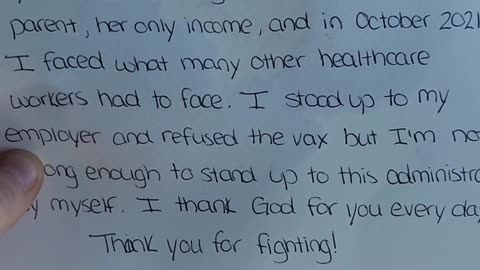 parent, her only income, and in October 2021
I faced what many other healthcare
workers had to face. I stood up to my
employer and refused the vax but I'm no
ong enough to stand up to this administra
y myself. I thank God for you every day
Thank you for fighting!